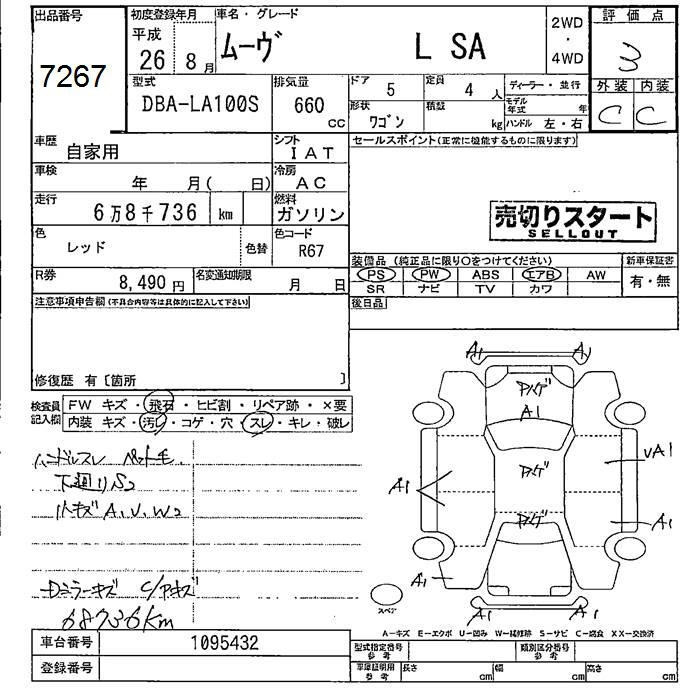 出品番号 初度登録年月 車名・グレード 2WD ・ 4WD 評価点
7267 平成 26 8月 ムーヴ L SA 3
型式 DBA-LA100S 排気量 660 CC ドア 5 定員 4 人 ディーラー・並行 外装 内装
形状 ワゴン 積載 kg モデル年式 年 ハンドル 左・右 C C
車歴 自家用 シフト IAT セールスポイント(正常に機能するものに限ります)
車検 年 月( 日) 冷房 AC
走行 6万8千736 km 燃料 ガソリン 売切りスタート
SELLOUT
色 レッド 色替 色コード R67
装備品 (純正品に限り○をつけてください) 新車保証書
R券 8,490円 名変通知期限 月 日 PS PW ABS エアB AW 有・無
SR ナビ TV カワ
注意事項申告欄(不具合内容等は具体的に記入して下さい) 後日品
修復歴 有〔箇所 〕
検査員記入欄 FW キズ・飛石・ヒビ割・リペア跡・×要
内装 キズ・汚レ・コゲ・穴・スレ・キレ・破レ
ハンドルスレ ペット毛
下廻りS2
小キズ A1, U, W2
ミラーキズ
68736km
A1 A1
アバゲ
A1
アバゲ
UA1
A1
アバゲ
A1
A1
A1 A1
スペア
A-キズ E-エクボ U-凹み W-補修跡 S-サビ C-腐食 XX-交換済
車台番号 1095432 型式指定番号 参考 類別区分番号 参考
登録番号 車庫証明用 参考 長さ cm 幅 cm 高さ cm